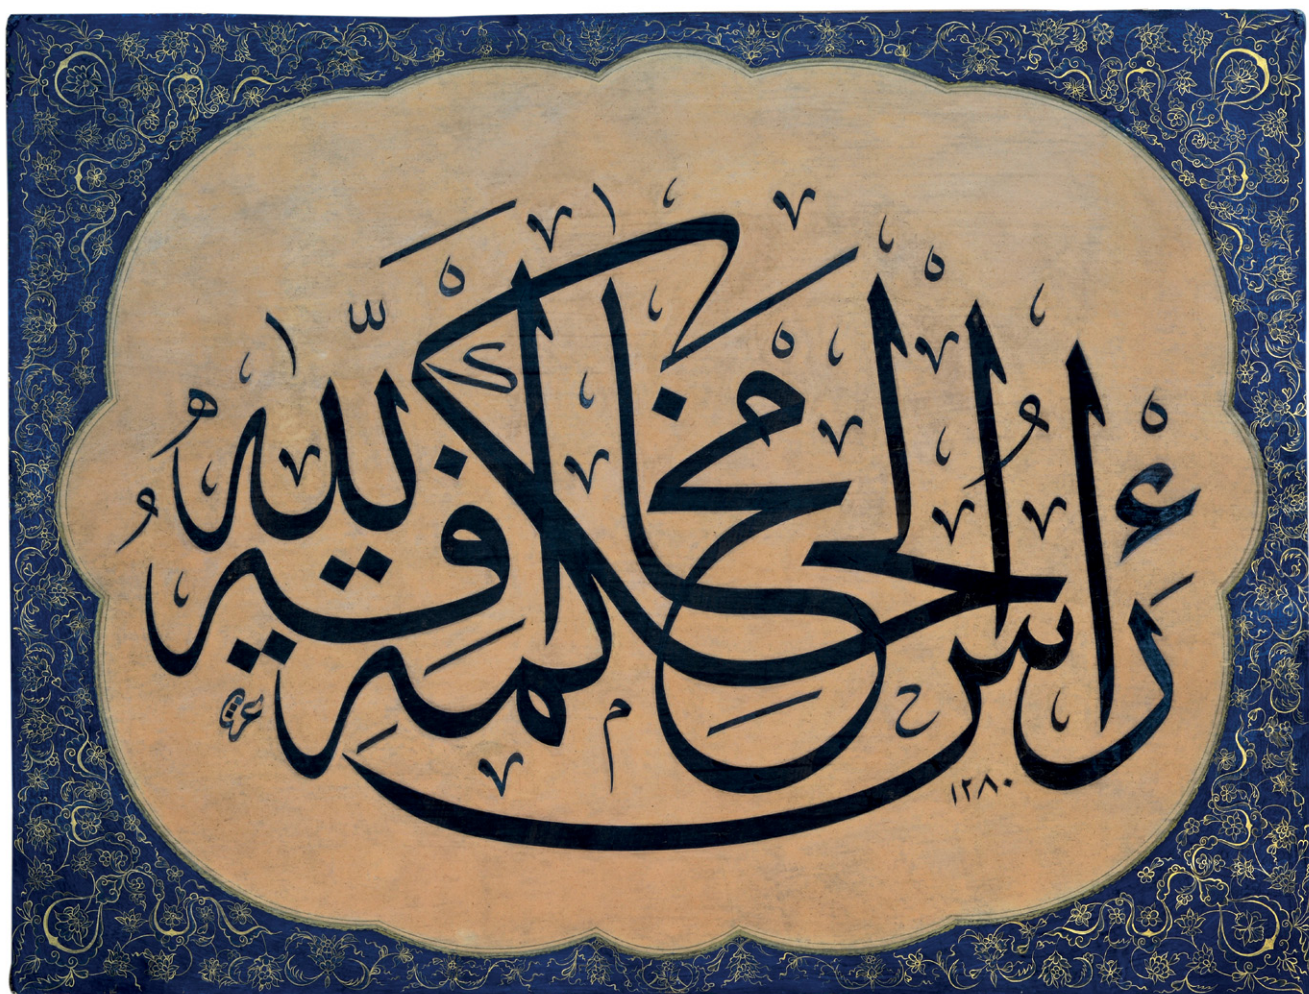 رَأْسُ الْحِكْمَةِ مَخَافَةُ اللّٰهِ
١٢٨٠